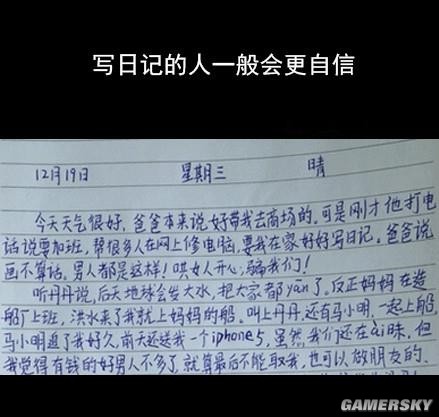 写日记的人一般会更自信
12月19日 星期三 晴
今天天气很好，爸爸本来说好带我去商场的。可是刚才他打电
话说要加班，帮很多人在网上修电脑，要我在家好好写日记。爸爸说
画不算话。男人都是这样！哄女人开心，骗我们！
听丹丹说，后天地球会发大水，把大家都yān了。反正妈妈在造
船厂上班，洪水来了我就上妈妈的船。叫上丹丹，还有马小明，一起上船，
马小明追了我好久，前天还送我一个iphone5，虽然我们还在ài昧，但
我觉得有钱的好男人不多了，就算最后不能取我，也可以做朋友的。
GAMERSKY